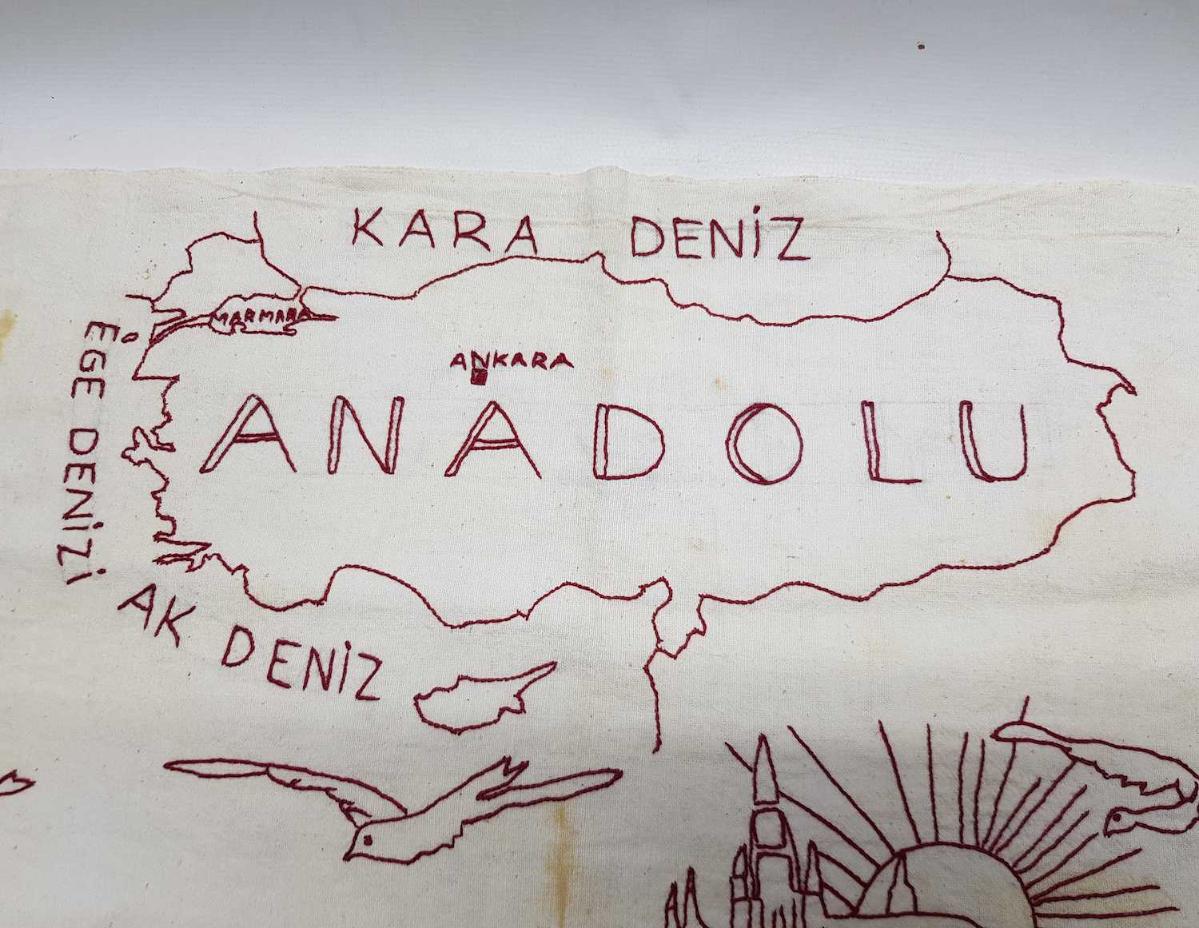 KARA DENİZ
MARMARA
EGE DENİZİ
ANKARA
ANADOLU
AK DENİZ